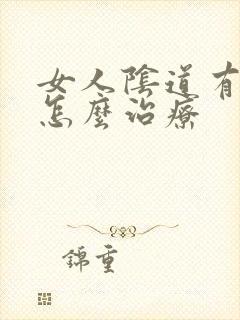 女人陰道有
怎麼治療
錦重